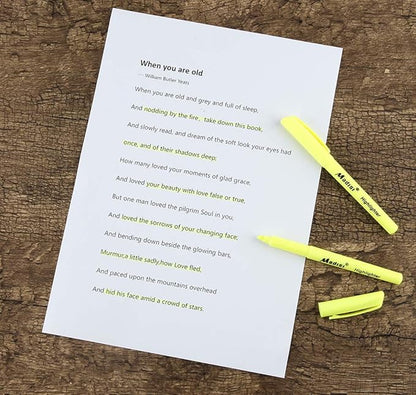 When you are old
— William Butler Yeats
When you are old and grey and full of sleep,
And nodding by the fire, take down this book,
And slowly read, and dream of the soft look your eyes had
once, and of their shadows deep;
How many loved your moments of glad grace,
And loved your beauty with love false or true,
But one man loved the pilgrim Soul in you,
And loved the sorrows of your changing face;
And bending down beside the glowing bars,
Murmur,a little sadly,how Love fled,
And paced upon the mountains overhead
And hid his face amid a crowd of stars.
Madisi Highlighter
Madisi Highlighter